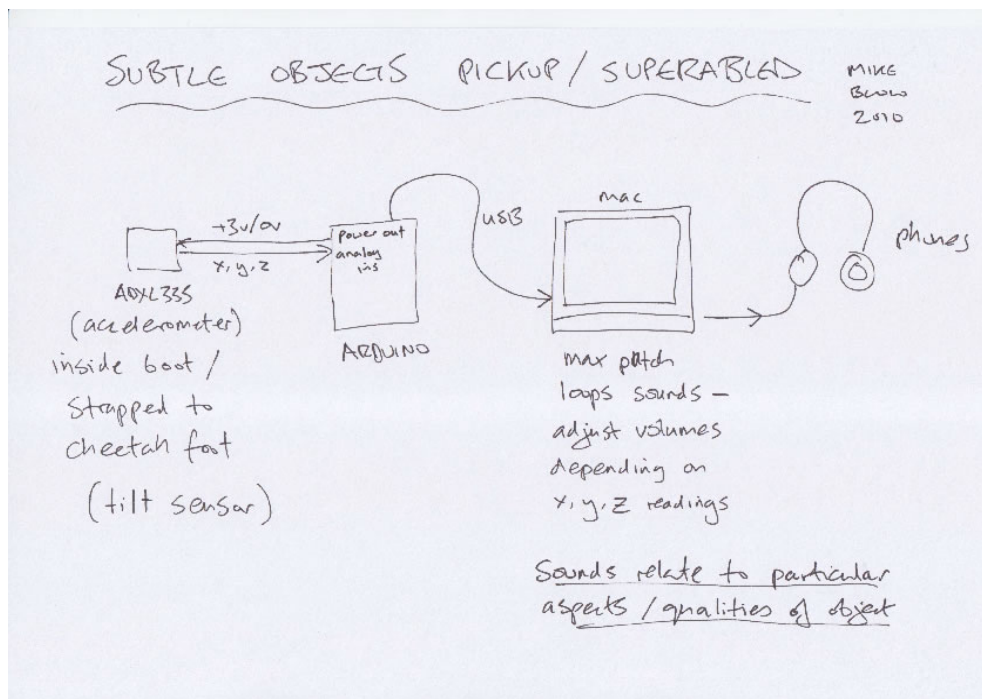 SUBTLE OBJECTS PICKUP / SUPERABLED
MIKE
BLOW
2010
+3v/0v
x, y, z
ADXL335
(accelerometer)
inside boot /
strapped to
cheetah foot
(tilt sensor)
power out
analog
ins
ARDUINO
USB
mac
phones
max patch
loops sounds –
adjust volumes
depending on
x, y, z readings
Sounds relate to particular
aspects / qualities of object